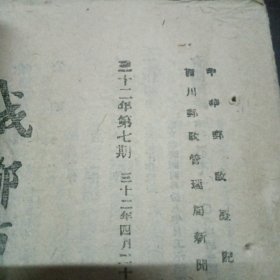 中華郵政登記
西川郵政管理局新聞
三十二年第七期 三十二年四月二十
我鄉